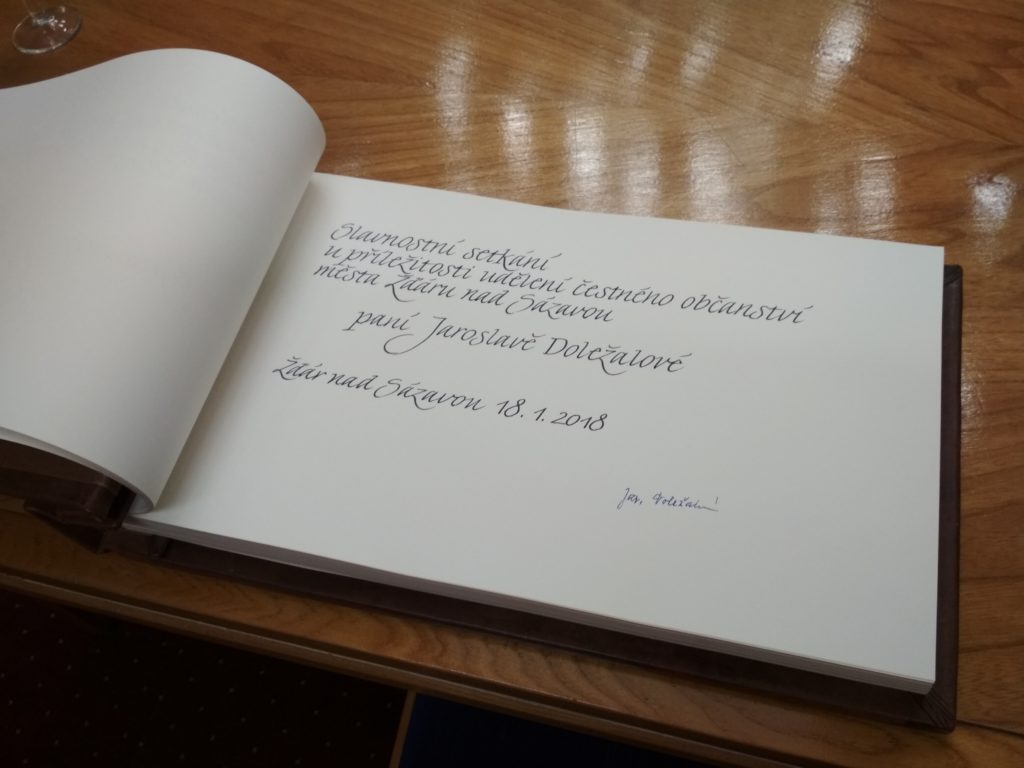 Slavnostní setkání
u příležitosti udělení čestného občanství
města Žďáru nad Sázavou
paní Jaroslavě Doležalové
Žďár nad Sázavou 18. 1. 2018
Jar. Doležalová